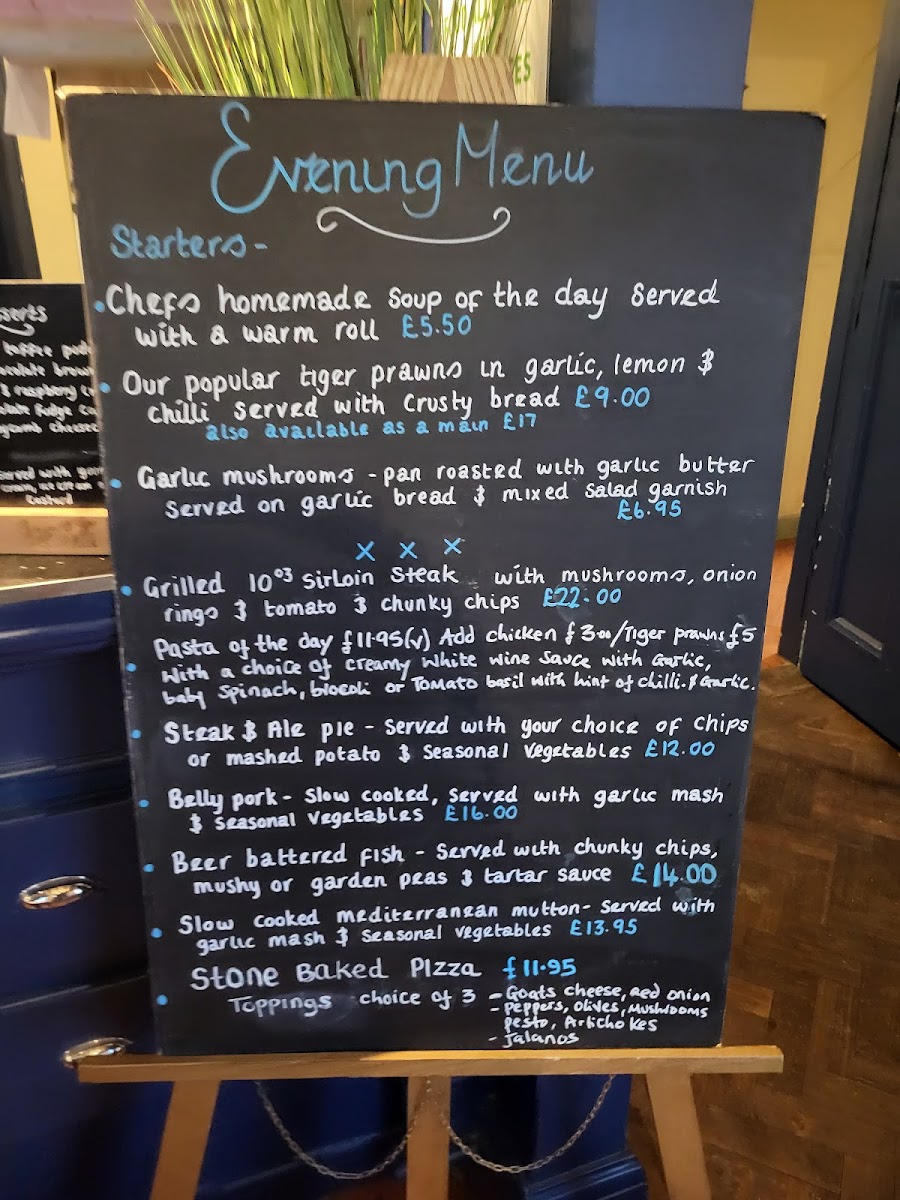 ES
Evening Menu
Starters -
• Chefs homemade soup of the day served
with a warm roll £5.50
• Our popular tiger prawns in garlic, lemon &
chilli served with crusty bread £9.00
also available as a main £17
• Garlic mushrooms - pan roasted with garlic butter
served on garlic bread & mixed salad garnish
£6.95
x x x
• Grilled 10oz sirloin steak with mushrooms, onion
rings & tomato & chunky chips £22.00
• Pasta of the day £11.95(v) Add chicken £3.00/Tiger prawns £5
With a choice of creamy white wine sauce with Garlic,
baby spinach, brocoli or Tomato basil with hint of chilli. & Garlic.
• Steak & Ale pie - Served with your choice of chips
or mashed potato & seasonal vegetables £12.00
• Belly pork - slow cooked, served with garlic mash
& seasonal vegetables £16.00
• Beer battered fish - Served with chunky chips,
mushy or garden peas & tartar sauce £14.00
• Slow cooked mediterranean mutton - Served with
garlic mash & seasonal vegetables £13.95
• Stone Baked Pizza £11.95
Toppings choice of 3 - Goats cheese, red onion
- Peppers, Olives, Mushrooms
pesto, Artichokes
- Jalanos
serts
toffee
raspberry
fudge
served with
custard